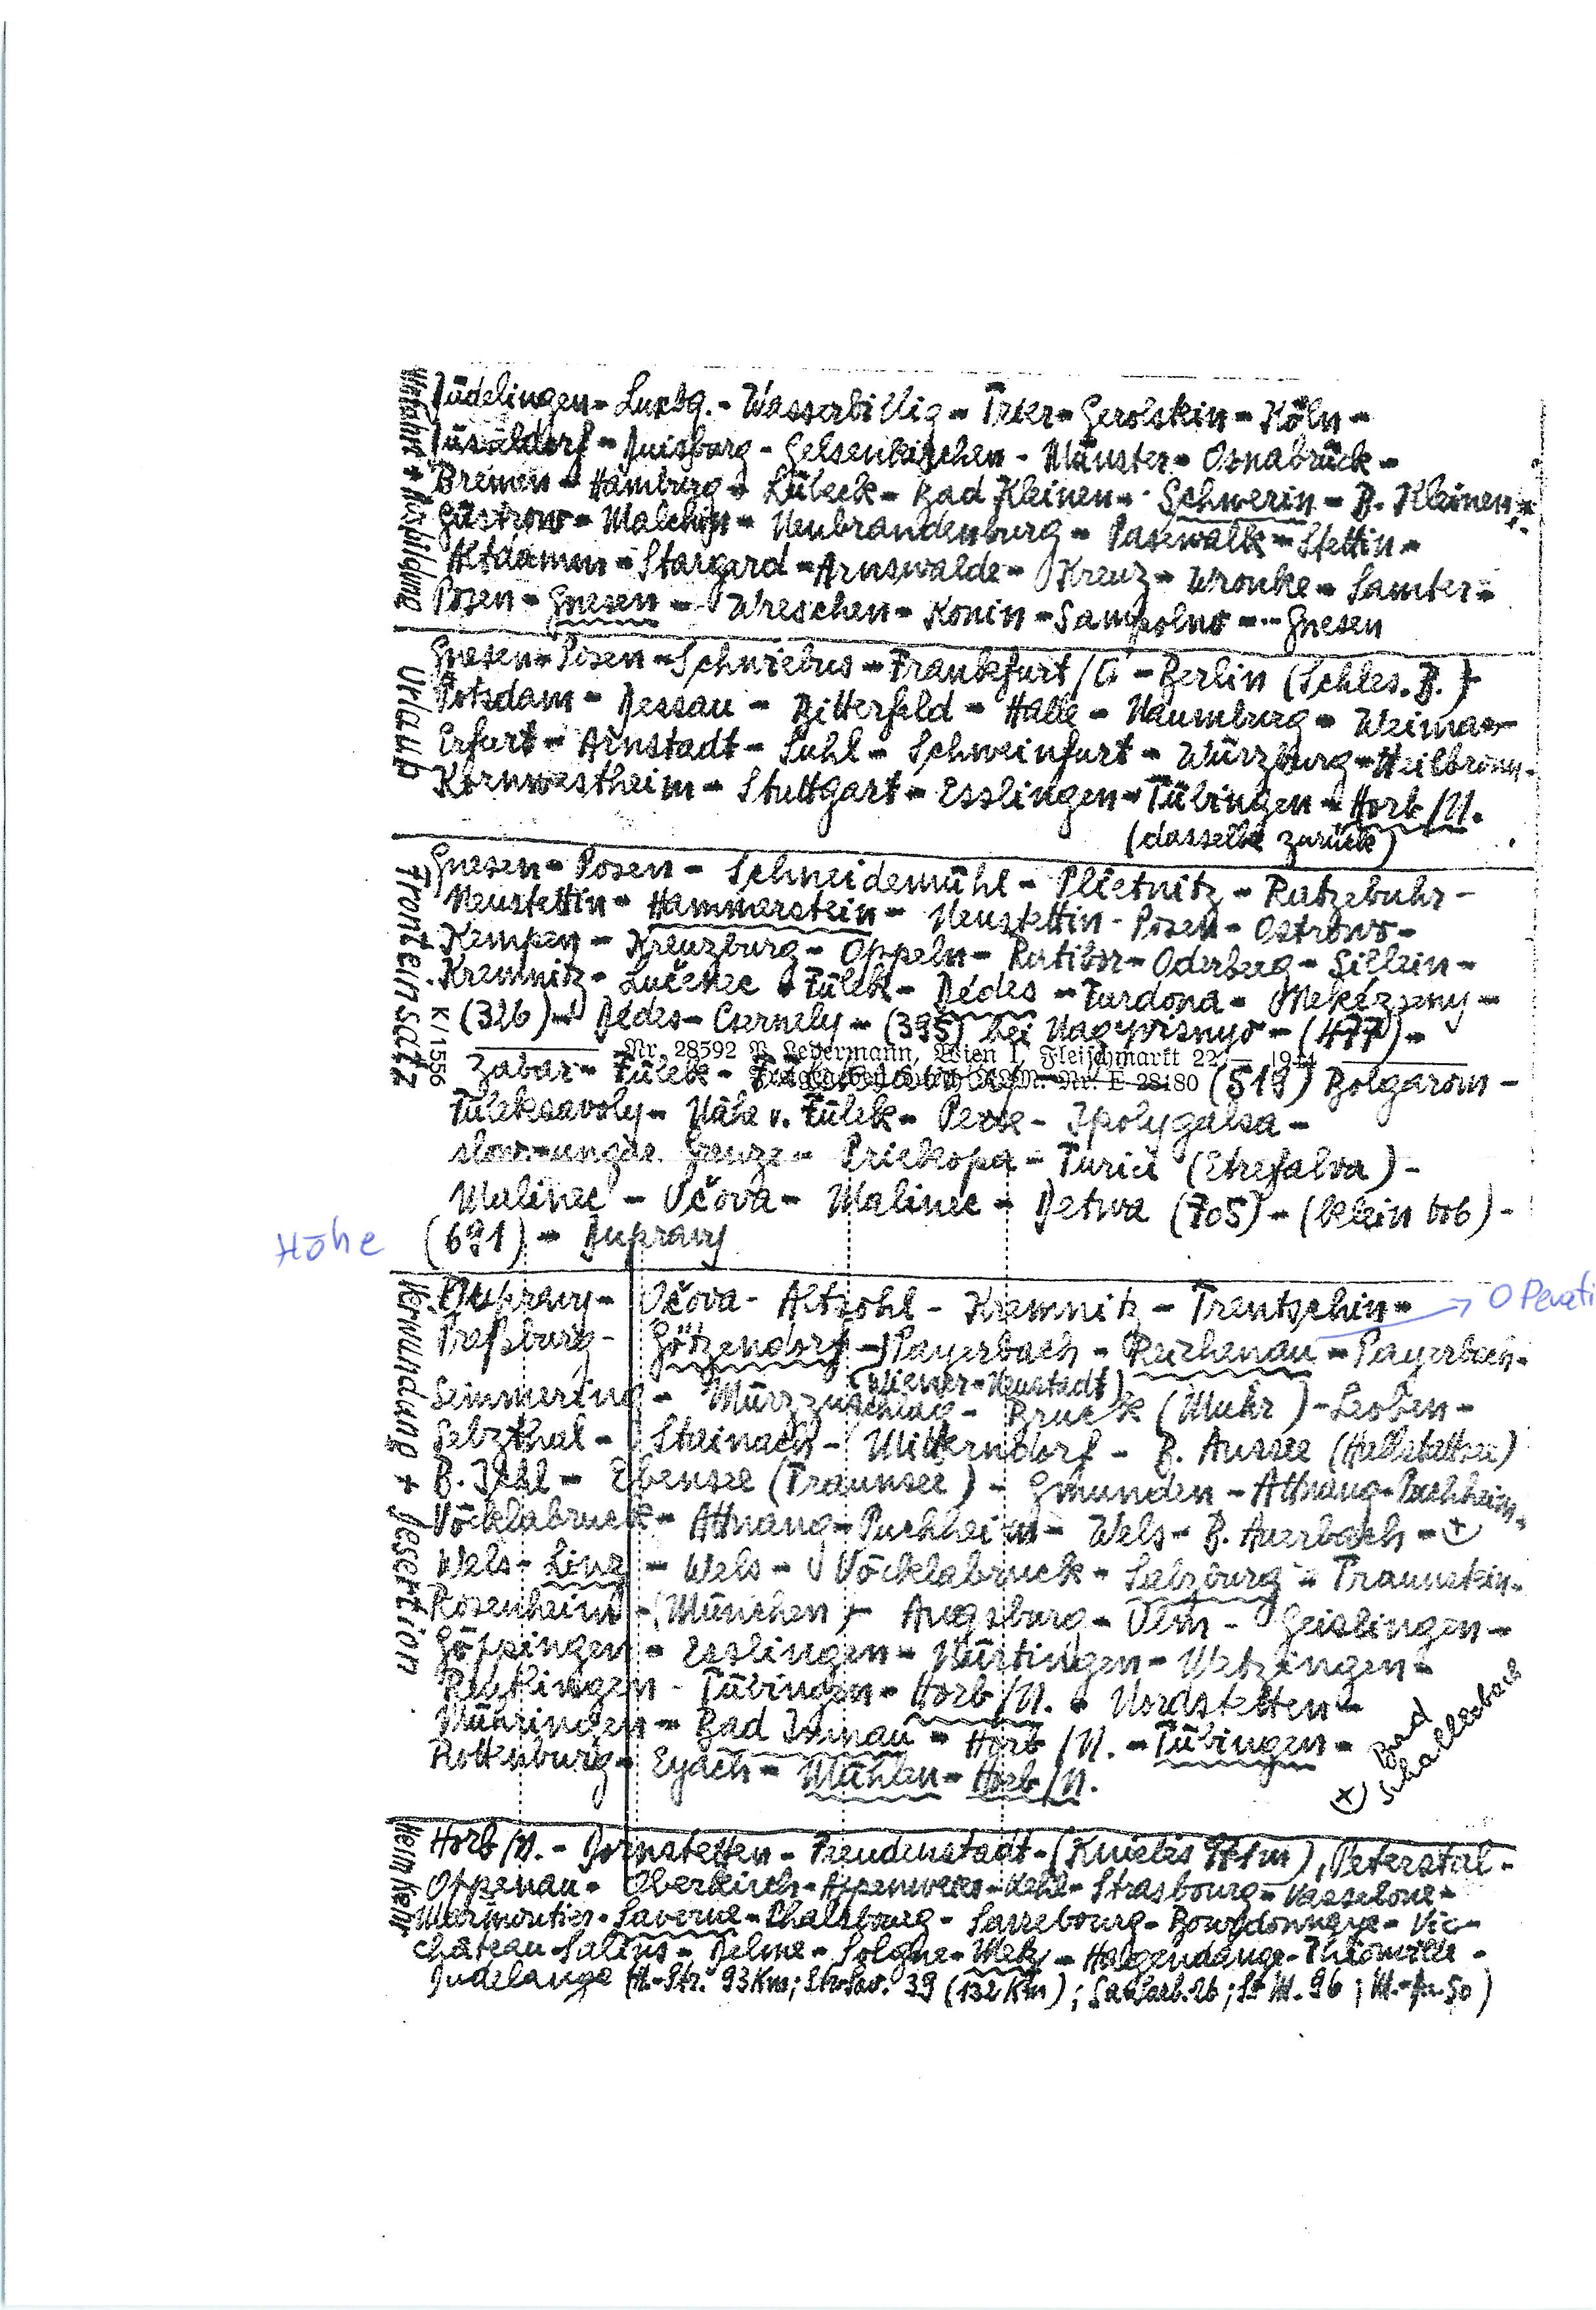 Düdelingen - Luxbg. - Wasserbillig - Trier - Gerolstein - Köln -
Düsseldorf - Duisburg - Gelsenkirchen - Münster - Osnabrück -
Bremen - Hamburg - Lübeck - Bad Kleinen - Schwerin - B. Kleinen -
Güstrow - Malchin - Neubrandenburg - Pasewalk - Stettin -
Altdamm - Stargard - Arnswalde - Kreuz - Wronke - Samter -
Posen - Gnesen - Wreschen - Konin - Sampolno - Gnesen
+ Ausbildung
Urlaub
Gnesen - Posen - Schwiebus - Frankfurt/O - Berlin (Schles. B.) -
Potsdam - Dessau - Bitterfeld - Halle - Naumburg - Weimar -
Erfurt - Arnstadt - Suhl - Schweinfurt - Würzburg - Heilbronn -
Kornwestheim - Stuttgart - Esslingen - Tübingen - Horb/N.
(dasselbe zurück)
Fronteinsatz
Gnesen - Posen - Schneidemühl - Plietnitz - Ratzebuhr -
Neustettin - Hammerstein - Neustettin - Posen - Ostrowo -
Kempen - Kreuzburg - Oppeln - Ratibor - Oderberg - Sillein -
Kremnitz - Lučenec - Fülek - Dédes - Tardona - Mekézseny -
(326) - Dédes - Csernely - (395) bei Nagyvisnyo - (477) -
K/1556
Nr. 28592 Ledermann, Wien I, Fleischmarkt 22 — 1944
Nr. E 28180
Zabar - Fülek - (519) Bolgarom -
Füleksavoly - Nähe v. Fülek - Perse - Ipolygalsa -
slow.-ungar. Grenze - Priekopa - Turici (Etrefalva) -
Malinec - Očova - Malinec - Detwa (705) - (klein bob) -
Höhe
(691) - Dupravy
Verwundung + Desertion
Dupravy - Očova - Altsohl - Kremnitz - Trentschin -
Operati
Preßburg - Götzendorf - Payerbach - Reichenau - Payerbach -
(Wiener-Neustadt)
Semmering - Mürzzuschlag - Bruck (Muhr) - Leoben -
Selzthal - Steinach - Mitterndorf - B. Aussee (Hallstattsee)
B. Ischl - Ebensee (Traunsee) - Gmunden - Attnang-Puchheim -
Vöcklabruck - Attnang-Puchheim - Wels - B. Auerbach - +
Wels - Linz - Wels - Vöcklabruck - Salzburg - Traunstein -
Rosenheim - (München) - Augsburg - Ulm - Geislingen -
Göppingen - Esslingen - Nürtingen - Metzingen -
Reutlingen - Tübingen - Horb/N. - Nordstetten -
Mühringen - Bad Imnau - Horb/N. - Tübingen -
Rottenburg - Eyach - Mühlen - Horb/N.
x Bad Schallerbach
Heimkehr
Horb/N. - Dornstetten - Freudenstadt - (Kniebis 971m), Peterstal -
Oppenau - Oberkirch - Appenweier - Kehl - Strasbourg - Wasselone -
Marmoutier - Saverne - Phalsbourg - Sarrebourg - Bourdonnaye - Vic -
château-Salins - Delme - Solgne - Metz - Hagendange - Thionville -
Dudelange (H.-Str. 93 Km; Str.-Sav. 39 (132 Km); Sa-Sarb. 26; S-M. 96; M.-Du. 50)